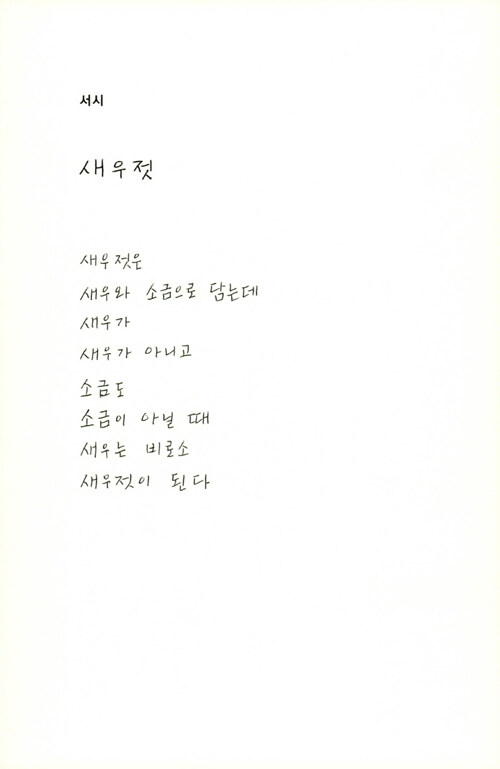 서시
새우젓
새우젓은
새우와 소금으로 담는데
새우가
새우가 아니고
소금도
소금이 아닐 때
새우는 비로소
새우젓이 된다